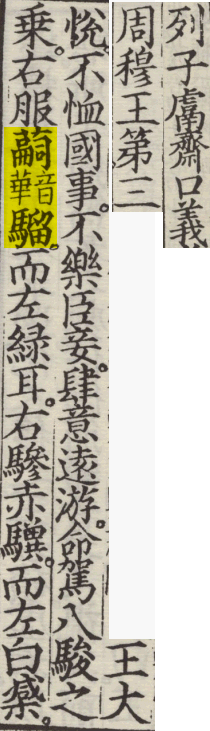 列子鬳齋口義
周穆王第三
王大
悅。不恤國事。不樂臣妾。肆意遠游。命駕八駿之
乘。右服音華騮。而左綠耳。右驂赤驥。而左白。